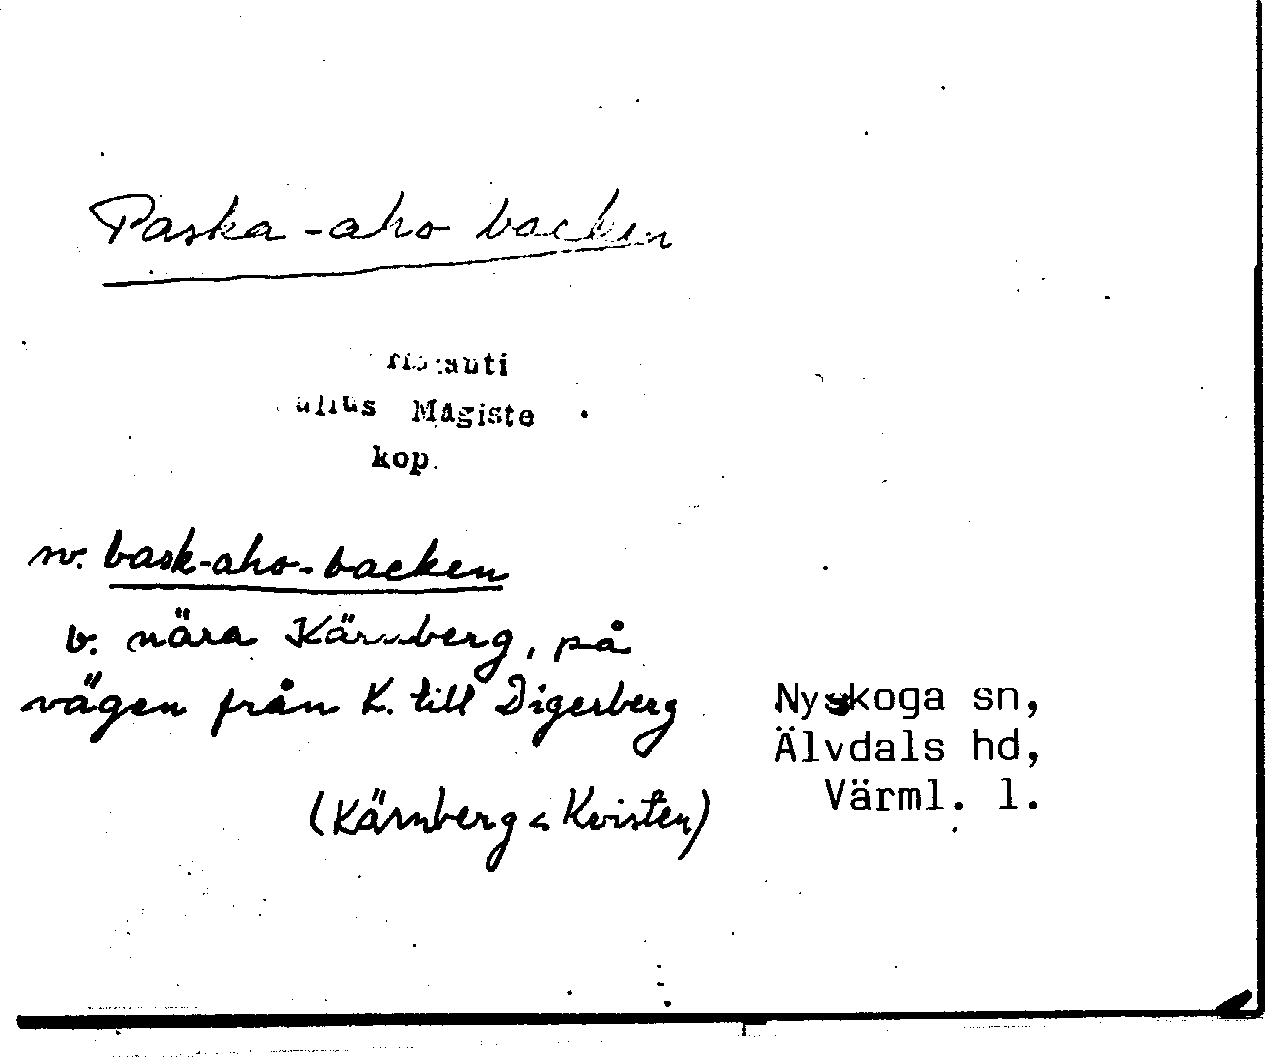 Paska-aho backen
Magiste
kop.
sv. bask-aho-backen
b. nära Kärnberg, på
vägen från K. till Digerberg
(Kärnberg < Kvisten)
Nyskoga sn,
Älvdals hd,
Värml. l.